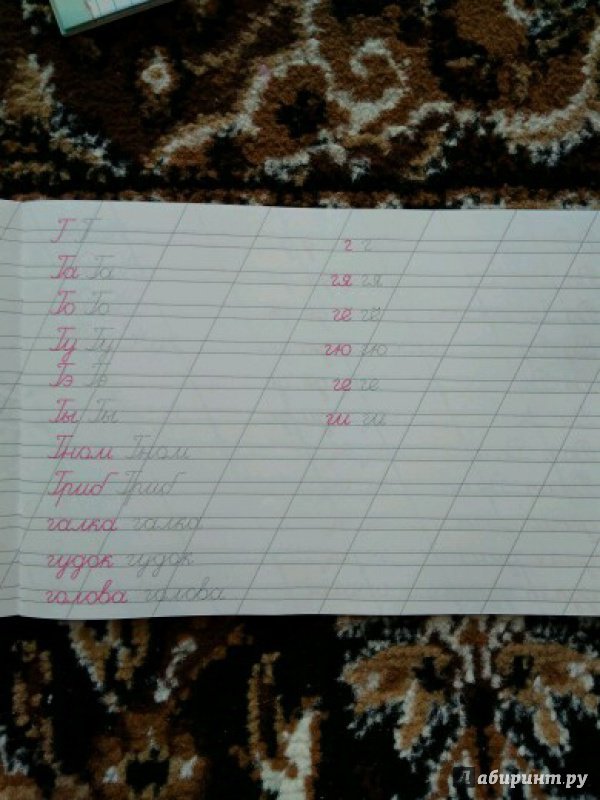 Г Г г г
Га Га гя гя
Го Го гё гё
Гу Гу гю гю
Гэ Гэ ге ге
Гы Гы ги ги
Гном Гном
Гриб Гриб
галка галка
гудок гудок
голова голова
Лабиринт.ру